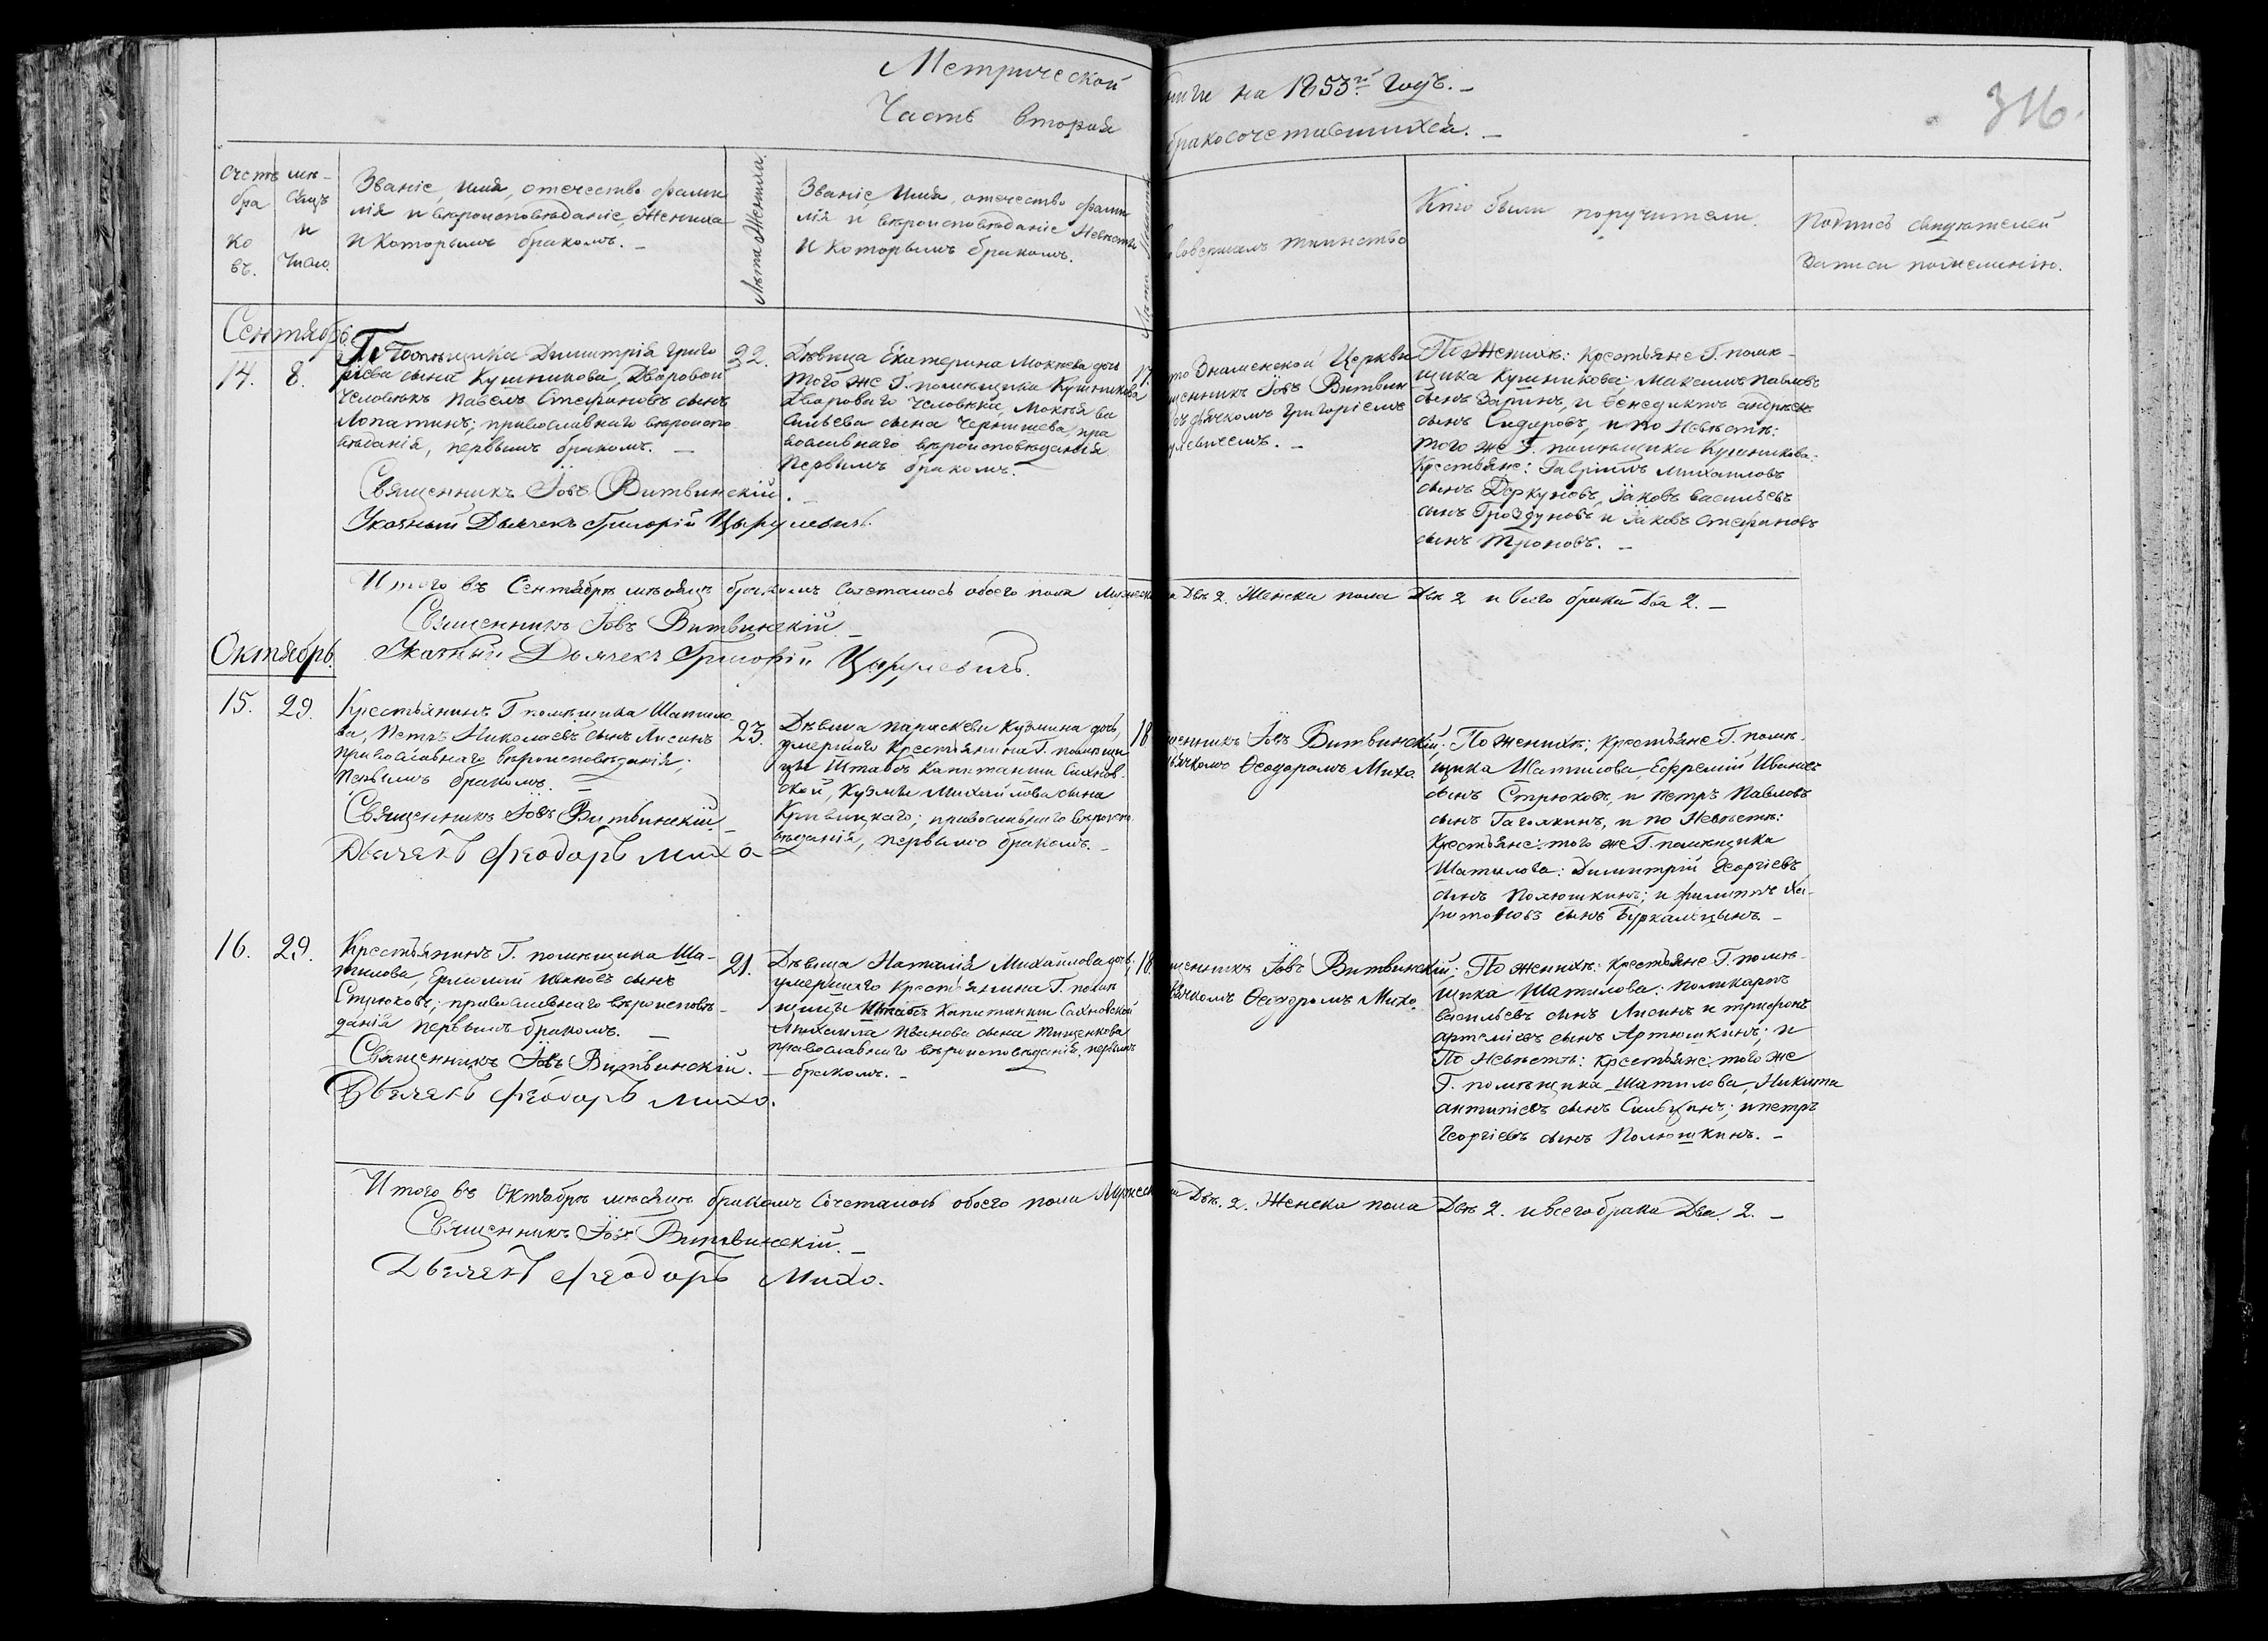 Метрической
книги на 1853й годъ.
Часть вторая
бракосочетавшихся.
316.
Счетъ бра ко въ.
мѣ- сяцъ и число.
Званіе, имя, отечество фами
лія и вѣроисповѣданіе, Жениха
и которымъ бракомъ.
Лѣта Жениха.
Званіе, имя, отечество фами
лія и вѣроисповѣданіе Невѣсты
и которымъ бракомъ.
Лѣта Невѣсты
совершалъ таинство
Кто были поручители.
Подпись свидѣтелей
записи по желанію.
Сентябрь.
14. 8.
Г. Помѣщика Димитрія Григо
ріева сына Кушникова, Дворовой
человѣкъ Павелъ Стефановъ сынъ
Лопатинъ; православнаго вѣроиспо
вѣданія, первымъ бракомъ.
Священникъ Іовъ Витвинскій.
Указный Дьячекъ Григорій Цырулевичъ.
22.
Дѣвица Екатерина Мокіева дочь
того же Г. помѣщика Кушникова
двороваго человѣка, Мокія Ва
сильева сына Чернышева, пра
вославнаго вѣроисповѣданія
первымъ бракомъ.
17.
то Знаменской Церкви
щенникъ Іовъ Витвин
съ дьячкомъ Григоріемъ
улевичемъ.
По Женихѣ: Крестьяне Г. помѣ-
щика Кушникова: Максимъ Павловъ
сынъ Заринъ, и Бенедиктъ Андреевъ
сынъ Сидоровъ, и по Невѣстѣ:
того же Г. помѣщика Кушникова:
Крестьяне: Гавріилъ Михаиловъ
сынъ Деркуновъ, Іаковъ Васильевъ
сынъ Гроздуновъ и Іаковъ Стефановъ
сынъ Троновъ.
Итого въ Сентябрѣ мѣсяцѣ бракомъ сочеталось обоего пола Мужеска Два 2. Женска пола Двѣ 2 и всего брака Два 2.
Священникъ Іовъ Витвинскій.
Указный Дьячекъ Григорій Цырулевичъ.
Октябрь.
15. 29.
Крестьянинъ Г помѣщика Шатило-
ва, Петръ Николаевъ сынъ Лисинъ
православнаго вѣроисповѣданія;
первымъ бракомъ.
Священникъ Іовъ Витвинскій.
Дьячекъ Феодоръ Михо-
23.
Дѣвица Параскева Кузмина дочь,
умершаго Крестьянина Г. помѣщи
цы Штабсъ Капитанши Сахнов-
ской, Кузмы Михайлова сына
Кривицкаго; православнаго вѣроиспо
вѣданія, первымъ бракомъ.
18
щенникъ Іовъ Витвинскій;
дьячкомъ Ѳеодоромъ Михо.
По женихѣ; Крестьяне Г. помѣ-
щика Шатилова, Ефремій Ивановъ
сынъ Стрюковъ, и Петръ Павловъ
сынъ Гагонкинъ, и по Невѣстѣ:
Крестьяне: того же Г. помѣщика
Шатилова: Димитрій Георгіевъ
сынъ Полюшкинъ; и Филиппъ Ха-
ритоновъ сынъ Буркалцынъ.
16. 29.
Крестьянинъ Г. помѣщика Ша-
тилова, Ермолай Ивановъ сынъ
Стрюковъ; православнаго вѣроисповѣ-
данія первымъ бракомъ.
Священникъ Іовъ Витвинскій.
Дьячекъ Феодоръ Михо.
21.
Дѣвица Наталія Михайлова дочь,
умершаго Крестьянина Г. помѣ
щицы Штабсъ Капитанши Сахновской
Михаила Иванова сына Тищенкова
православнаго вѣроисповѣданія, первымъ
бракомъ.
18
щенникъ Іовъ Витвинскій;
дьячкомъ Ѳеодоромъ Михо.
По женихѣ: Крестьяне Г. помѣ-
щика Шатилова: Поликарпъ
Васильевъ сынъ Лисинъ и Трифонъ
Артеміевъ сынъ Артюшкинъ; и
По Невѣстѣ: Крестьяне: того же
Г. помѣщика Шатилова, Никита
Антипіевъ сынъ; и Петръ
Георгіевъ сынъ Полюшкинъ.
Итого въ Октябрѣ мѣсяцѣ бракомъ сочеталось обоего пола Мужеска Двѣ. 2. Женска пола Двѣ 2. и всего брака Два. 2.
Священникъ Іовъ Витвинскій.
Дьячекъ Феодоръ Михо.